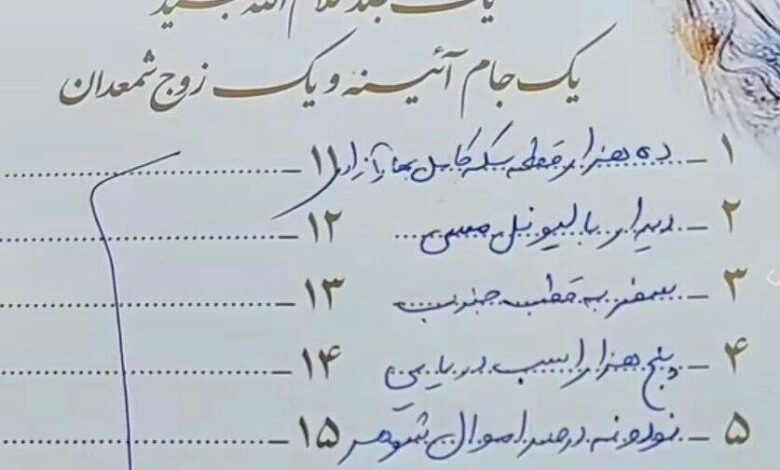 یک جلد کلام الله مجید
یک جام آئینه و یک زوج شمعدان
۱ـ ده هزار قطعه سکه کامل بهار آزادی ۱۱ـ
۲ـ دیدار با لیونل مسی ۱۲ـ
۳ـ سفر به قطب جنوب ۱۳ـ
۴ـ پنج هزار اسب دریایی ۱۴ـ
۵ـ نود و نه درصد اموال شوهر ۱۵ـ